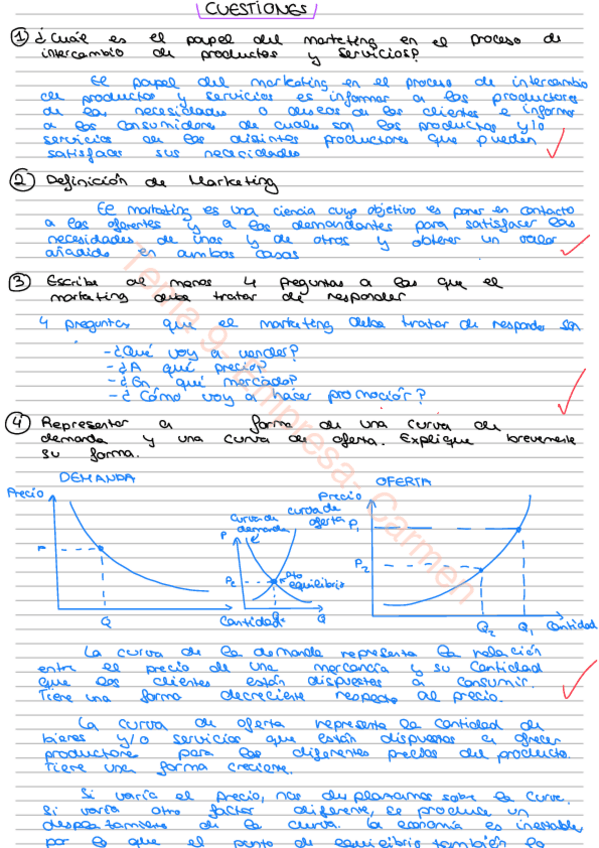 CUESTIONES
① ¿Cuál es el papel del marketing en el proceso de
intercambio de productos y servicios?
El papel del marketing en el proceso de intercambio
de productos y servicios es informar a los productores
de las necesidades o deseos de los clientes e informar
a los consumidores de cuales son los productos y/o
servicios de los distintos productores que pueden
satisfacer sus necesidades
② Definición de Marketing
El marketing es una ciencia cuyo objetivo es poner en contacto
a los oferentes y a los demandantes para satisfacer las
necesidades de unos y de otros y obtener un valor
añadido en ambos casos
③ Escribe al menos 4 preguntas a las que el
marketing deba tratar de responder
4 preguntas que el marketing deba tratar de responder son
-¿Qué voy a vender?
-¿A qué precio?
-¿En qué mercado?
-¿Cómo voy a hacer promoción?
④ Representar la forma de una curva de
demanda y una curva de oferta. Explique brevemente
su forma.
DEMANDA
OFERTA
Precio
Q
Cantidad
curva de demanda
curva de oferta
P
Pe
Pto equilibrio
Q
Precio
P1
P2
Q2 Q1 Cantidad
La curva de la demanda representa la relación
entre el precio de una mercancía y su cantidad
que los clientes están dispuestos a consumir.
Tiene una forma decreciente respecto al precio.
La curva de oferta representa la cantidad de
bienes y/o servicios que están dispuestos a ofrecer
productores para los diferentes precios del producto.
Tiene una forma creciente.
Si varía el precio, nos desplazamos sobre la curva.
Si varía otro factor diferente, se produce un
desplazamiento de la curva. La economía es inestable
por lo que el punto de equilibrio también lo
Tema 9- Empresa- Carmen